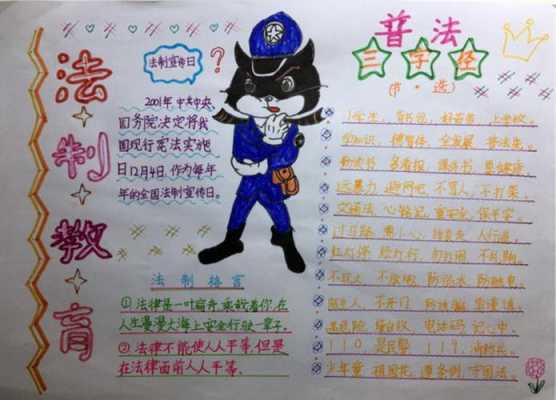 法制教育
法制宣传日
?
2001年,中共中央、
国务院决定将我
国现行宪法实施
日12月4日,作为每年
年的全国法制宣传日。
法制格言
①法律是一叶扁舟,承载着你,在
人生漫漫大海上安全行驶一辈子。
②法律不能使人人平等,但是
在法律面前人人平等。
普法
三字经
(节·选)
小学生,背书包,好苗苗,上学校。
学知识,德智体,全发展,普法先。
勤读书,多看报,课外书,要健康。
远暴力,避网吧,不骂人,不打架。
交通法,心铭记,重安全,保平安。
过马路,要小心,人行道。
红灯停,绿灯行,勿打闹,不乱跑。
不玩火,防溺水,防触电。
陌生人,不开门,
遇危险,要自救,电话码,记心中。
110,是民警,119,消防兵。
少年章,祖国花,遵条例,守国法。